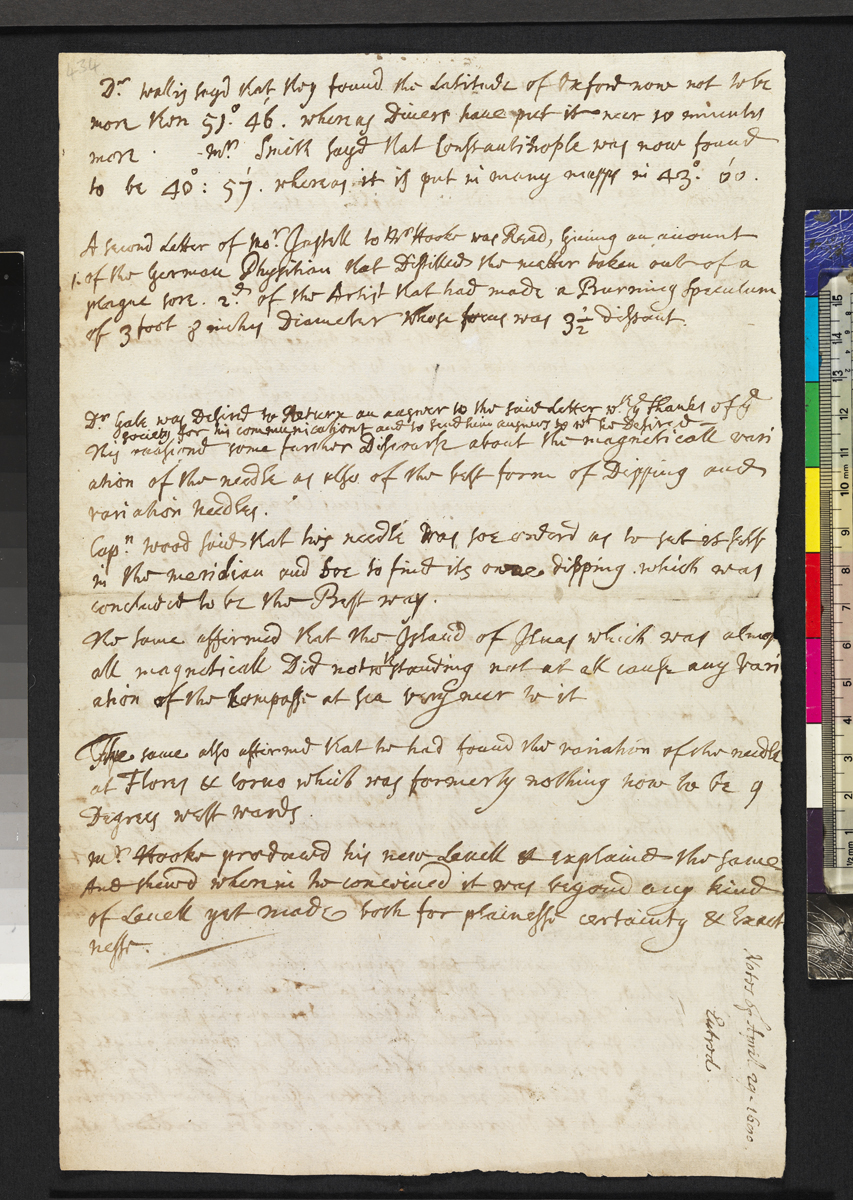 434
Dr wallis sayd that they found the Latitude of Oxford now not to be
more then 51°. 46'. whereas Divers have put it near 10 minutes
more. mr. Smith sayd that Constantinople was now found
to be 40°: 57'. whereas it is put in many mapps in 43°. 00.
A second Letter of mor. Justell to Mr Hooke was Read, Giving an account
1. of the German Physitian that Distilled the matter taken out of a
plague sore. 2d of the Artist that had made a Burning Speculum
of 3 foot 8 inches Diameter whose focus was 3½ distant.
Dr Gale was Desired to Return an answer to the said Letter wth ye thanks of ye
society for his communications and to send him answers to wt he Desired
This occasiond some further Discourse about the magneticall vari
ation of the needle as also of the best form of Dipping and
variation needles.
Capn wood said that his needle was soe orderd as to set it self
in the meridian and soe to find its owne dipping. which was
concluded to be the Best way.
The same affirmed that the Island of Ilvas which was almost
all magneticall Did notwthstanding not at all cause any vari
ation of the Compasse at sea very near to it
The same also affirmd that he had found the variation of the needle
at Flores & Corvo which was formerly nothing now to be 9
Degrees westwards.
mr. Hooke produced his new Levell & explaind the same
And shewd wherein he conceived it was beyond any kind
of Levell yet made both for plainesse certainty & Exact
nesse.
Notes of April 29. 1680.
Entred.